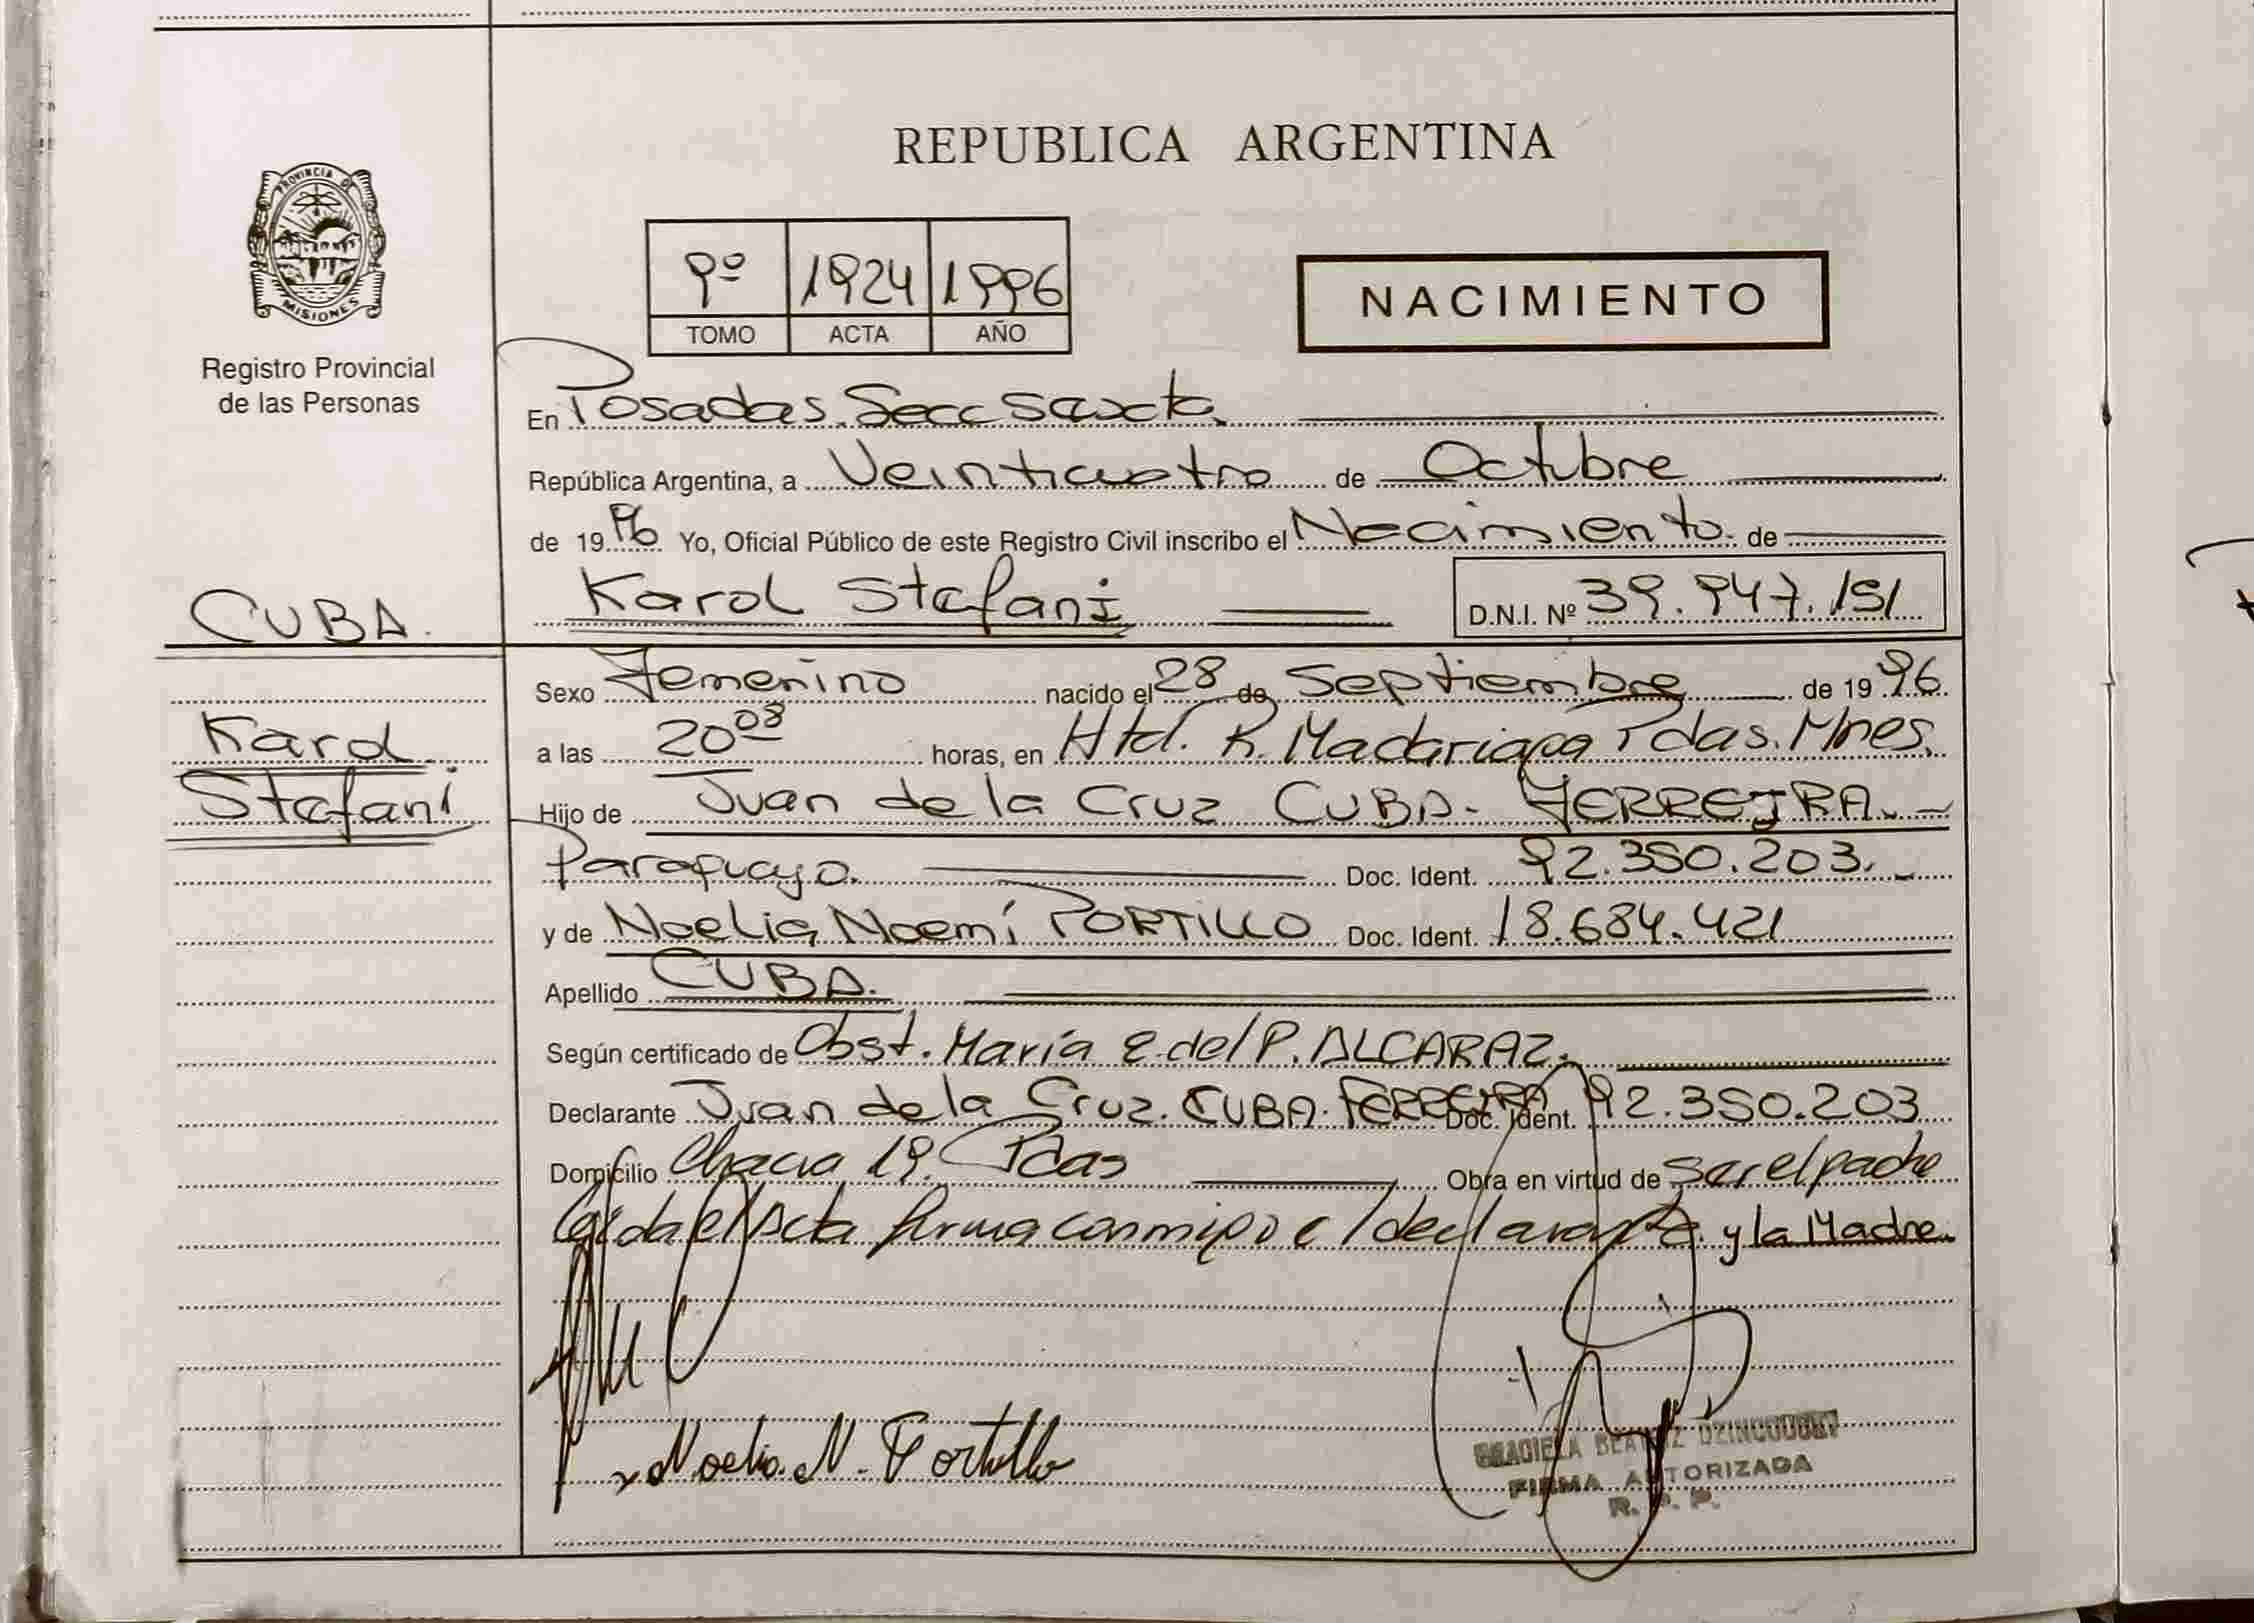 REPUBLICA ARGENTINA
PROVINCIA DE
MISIONES
Registro Provincial
de las Personas
9º 1924 1996
TOMO ACTA AÑO
NACIMIENTO
En Posadas. Secc Sexta
República Argentina, a Veinticuatro de Octubre
de 1996 Yo, Oficial Público de este Registro Civil inscribo el Nacimiento. de
Karol Stefani D.N.I. Nº 39.947.151
CUBA.
Karol
Stefani
Sexo Femenino nacido el 28 de Septiembre de 1996
a las 20 08 horas, en Htal. R. Madariaga Pdas. Mnes.
Hijo de Juan de la Cruz CUBA- FERREIRA.
Paraguayo. Doc. Ident. 92.350.203.
y de Noelia Noemí PORTILLO Doc. Ident. 18.684.421
Apellido CUBA.
Según certificado de Obst. María E. del P. ALCARAZ.
Declarante Juan de la Cruz. CUBA. FERREIRA Doc. Ident. 92.350.203
Domicilio Chacra 19. Pdas Obra en virtud de ser el padre
Leída el Acta firma conmigo el declarante. y la Madre.
Noelia. N. Portillo
GRACIELA BEATRIZ
FIRMA AUTORIZADA
R. P. P.